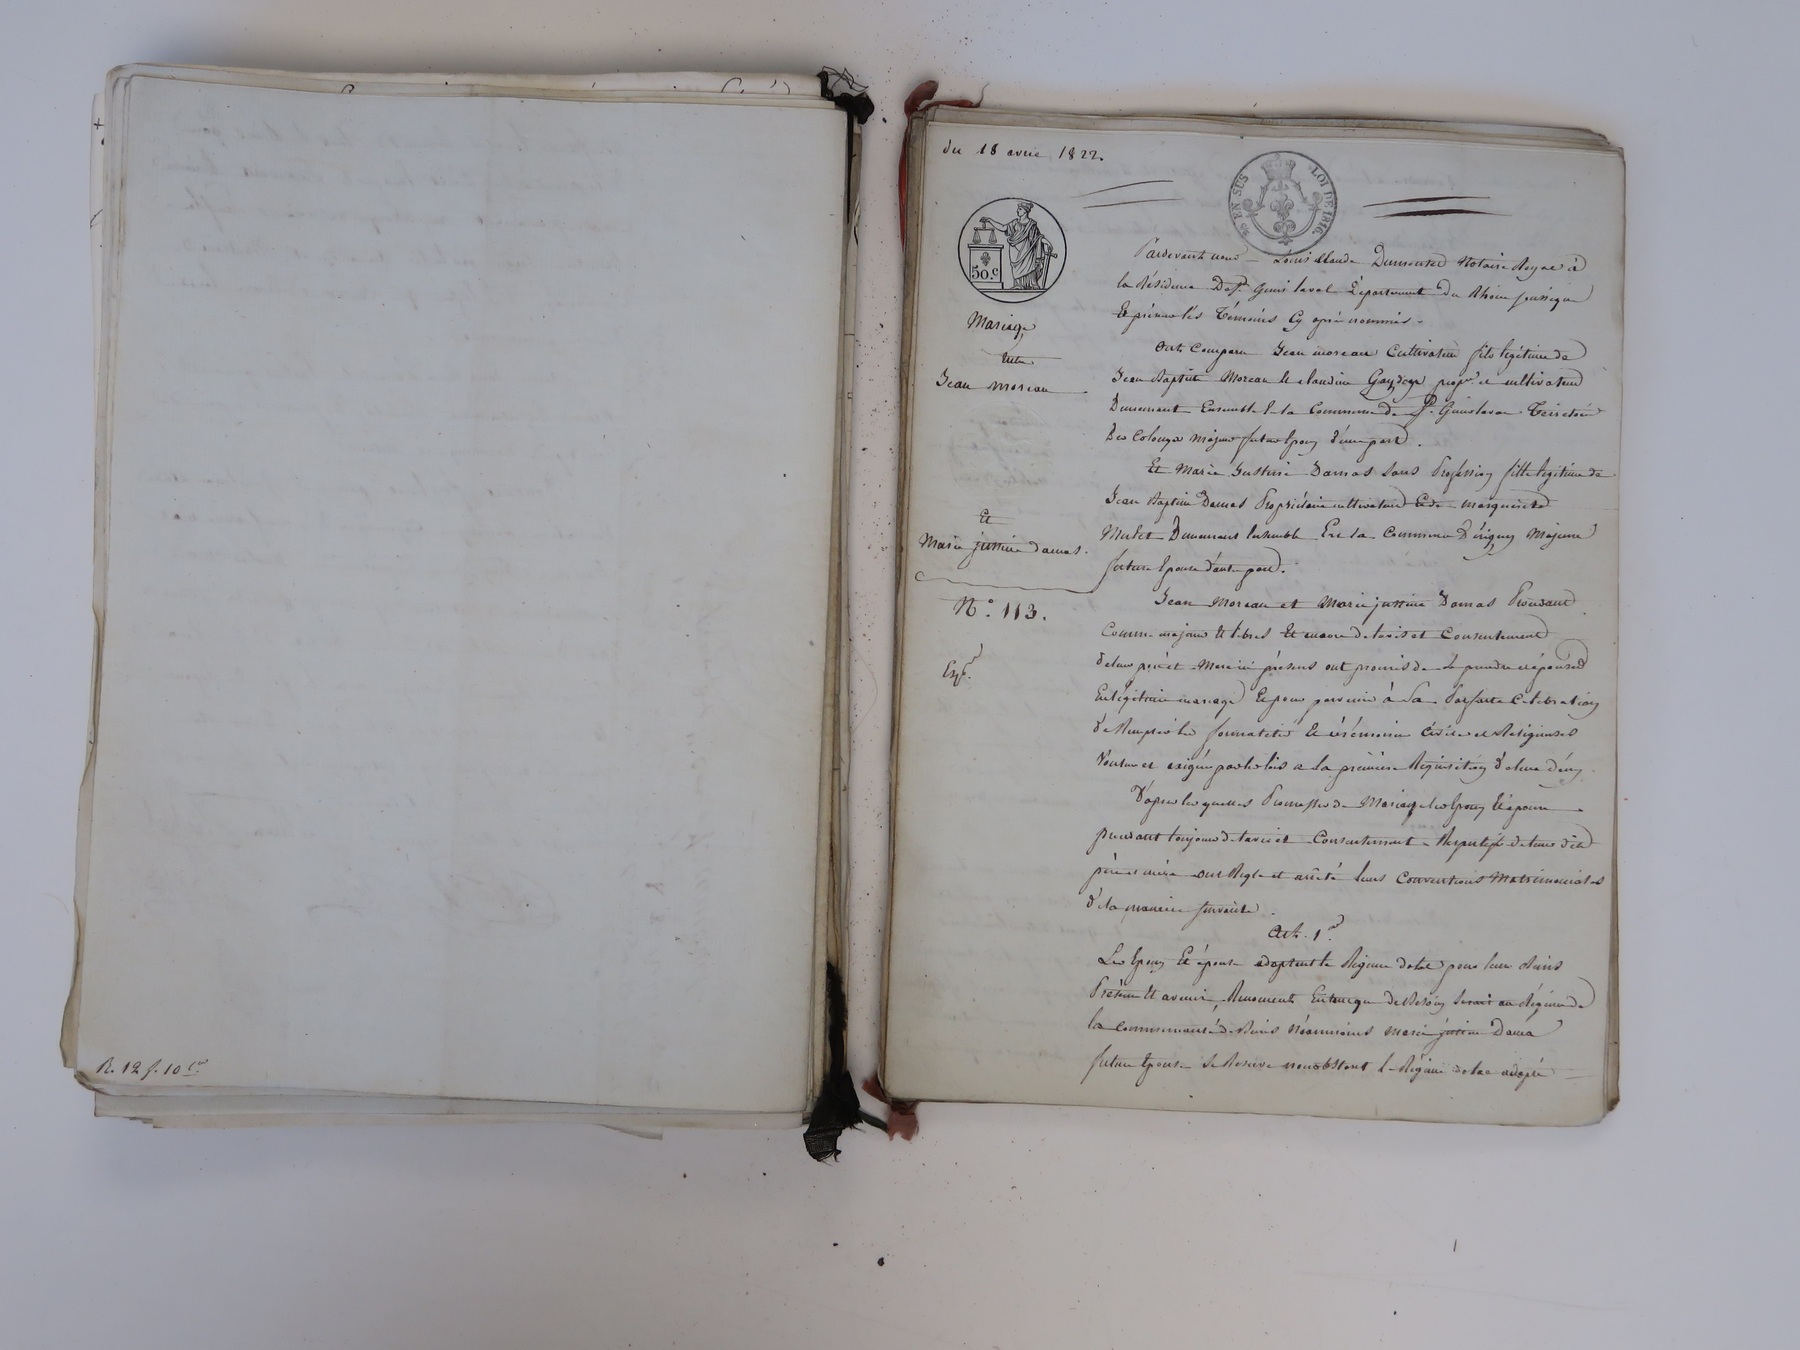 R. 12 f. 10 c.
du 18 avril 1822.
EN SUS LOI DE 1816
50.c
Mariage
Entre
Jean moreau
Et
Marie justine damas.
N.° 113.
Exp.
Pardevant nous Louis Claude Dumontet Notaire Royal à
la Résidence De St. Genis laval Département du Rhône soussigné
Et présence les Témoins Cy après nommés.
Ont Comparu Jean moreau Cultivateur fils légitime de
Jean Baptiste Moreau et claudine propre. et cultivateur
Demeurant Ensemble la Commune de St. Genis laval Territoire
des majeur futur Epoux d'une part.
Et Marie Justine Damas sans Profession fille legitime de
Jean Baptiste Damas Propriétaire cultivateur Et de marguerite
Mulet Demeurans Ensemble En la Commune d'irigny Majeure
future Epouse d'autre part.
Jean Moreau et Marie justine Damas Procédant
Comme majeurs et libres Et encore de l'avis et Consentement
de leur père et Mere ici présens ont promis de se prendre et épouser
En légitime mariage Et pour parvenir à Sa Parfaite Célébration
de Remplir les formalités Et cérémonies Civiles et Religieuses
Voulues et exigées par les lois a la première Requisition de l'un d'eux
D'après lesquelles Promesses de Mariage les Epoux Et épouse
procédant toujours de l'avis et Consentement Respectif de leurs dits
père et mère ont Réglé et arrêté leurs Conventions Matrimoniales
de la manière suivante.
Art. 1er.
Les Epoux Et épouse adoptent le Régime dotal pour leurs Biens
Présens Et avenir, Renoncent En tant que de Besoin Serait au Régime de
la communauté de Biens Néanmoins marie justine Damas
future Epouse Se Réserve nonobstant le Régime dotal adopté